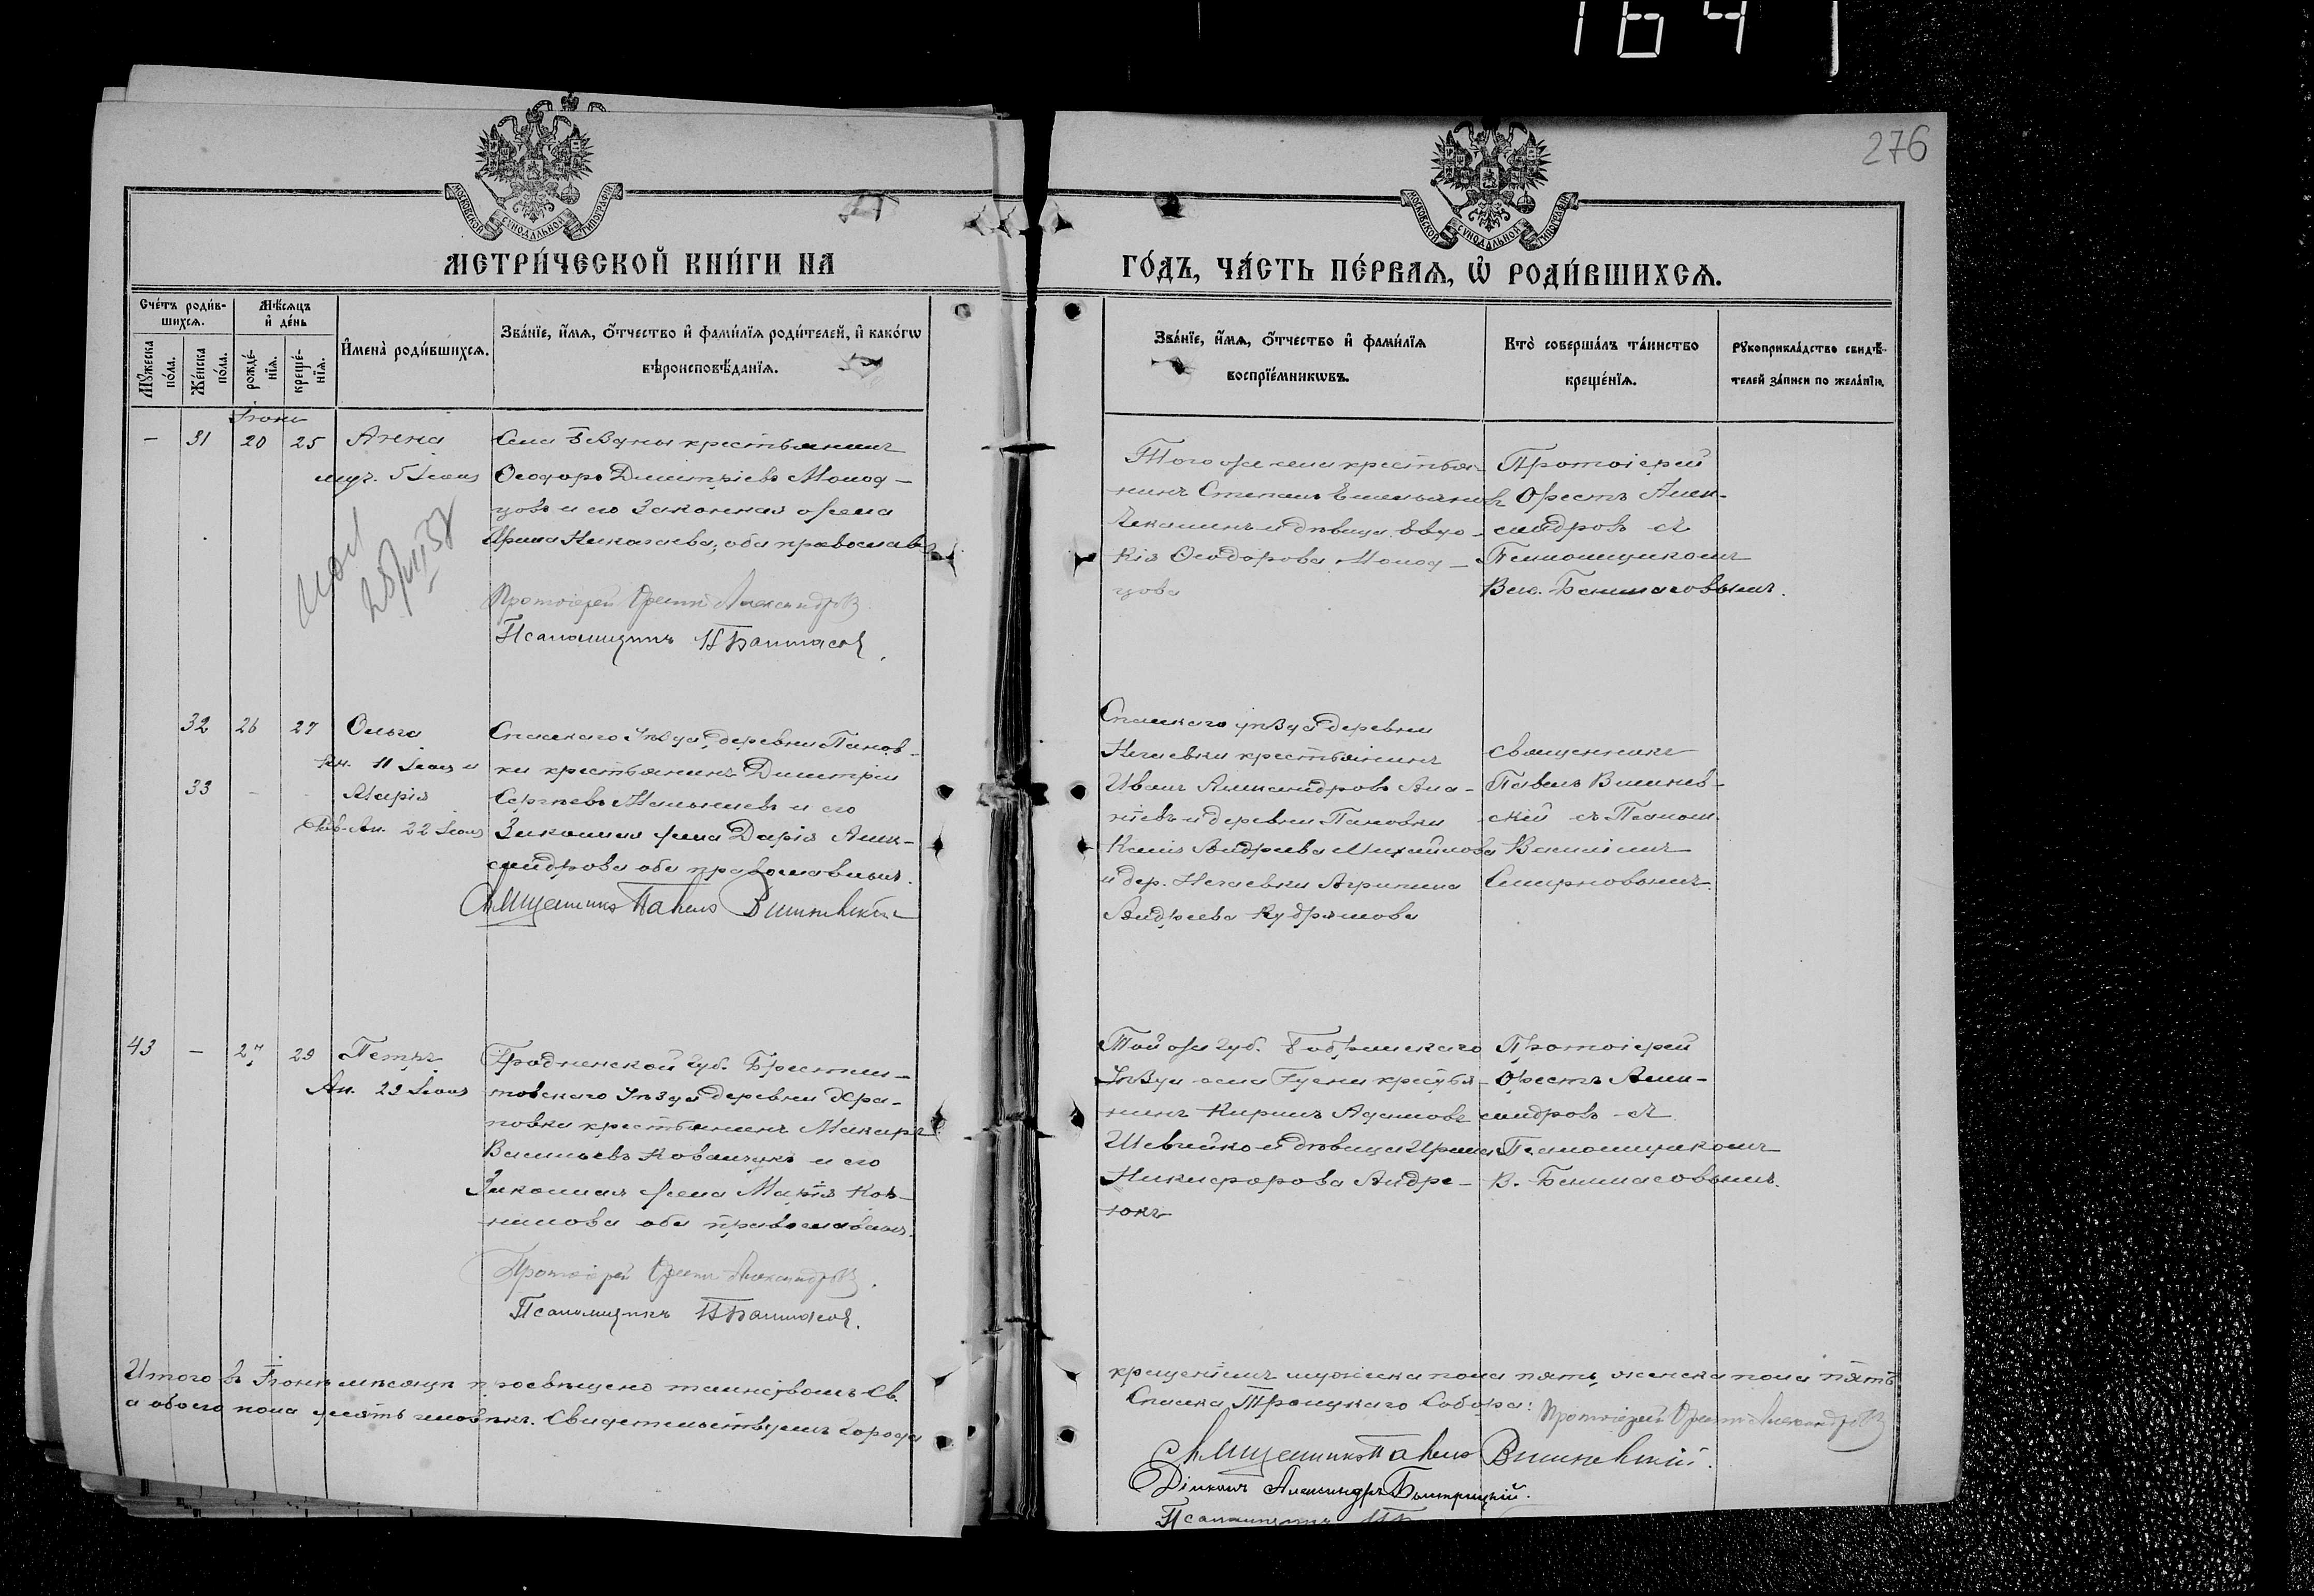 1641
276
МОСКОВСКОЙ СѴНОДАЛЬНОЙ ТИПОГРАФІИ
МОСКОВСКОЙ СѴНОДАЛЬНОЙ ТИПОГРАФІИ
МЕТРИ́ЧЕСКОЙ КНИ́ГИ НА
ГО́ДЪ, ЧА́СТЬ ПЕ́РВАѦ, Ѡ҆ РОДИ́ВШИХСѦ.
Сче́тъ роди́в-
шихсѧ.
Мѣ́сѧцъ
и҆ де́нь
Мꙋ́жеска
по́ла.
Же́нска
по́ла.
рожде́-
нїѧ.
креще́-
нїѧ.
И҆мена̀ роди́вшихсѧ.
Зва́нїе, и҆́мѧ, ѻ҆́тчество и҆ фами́лїѧ роди́телей, и҆ како́гѡ
вѣроисповѣ́данїѧ.
Зва́нїе, и҆́мѧ, ѻ҆́тчество и҆ фами́лїѧ
воспрїе́мникѡвъ.
Кто̀ соверша́лъ та́инство
креще́нїѧ.
Рꙋкоприкла́дство свидѣ́-
телей за́писи по жела́нїю.
Іюнь
— 31 20 25 Анна
муч. 5 Іюня
Села крестьянинъ
Ѳеодоръ Димитріевъ Молод-
цовъ и его законная жена
Ирина Николаева, оба православн.
Протоіерей Орестъ Александровъ.
Псаломщикъ В Башмасов.
Того же села крестья-
нинъ Степанъ Емельяновъ
Чекалинъ и дѣвица Евдо-
кія Ѳеодорова Молод-
цова
Протоіерей
Орестъ Алек-
сандровъ съ
Псаломщикомъ
Вас. Башмасовымъ.
32 26 27 Ольга
кн. 11 Іюля и
33 - Марія
Рав-Ап. 22 Іюля
Спасскаго Уѣзда деревни Панов-
ки крестьянинъ Димитрій
Сергѣевъ и его
Законная жена Дарія Алек-
сандрова оба православные.
Священникъ Павелъ Вишневскій
Спасскаго уѣзда деревни
Нагаевки крестьянинъ
Иванъ Александровъ Ана-
ньевъ и деревни Пановки
Андреева Михайлова
и дер. Нагаевки Агрипина
Андреева Кудряшова
Священникъ
Павелъ Вишнев-
скій съ Псалом.
Василіемъ
Смирновымъ.
43 — 27 29 Петръ
Ап. 29 Іюня
Гродненской губ. Брестли-
товскаго Уѣзда деревни Хра-
повки крестьянинъ Макаръ
Васильевъ Ковальчукъ и его
Законная жена Марія Кор-
нилова оба православные.
Протоіерей Орестъ Александровъ.
Псаломщикъ В Башмасов.
Той же губ. Кобринскаго
Уѣзда села крестья-
нинъ Кирилъ Адамовъ
Шевчикъ и дѣвица Ирина
Никифорова Андре-
юкъ
Протоіерей
Орестъ Алек-
сандровъ съ
Псаломщикомъ
В. Башмасовымъ.
Итого въ Іюнѣ мѣсяцѣ просвѣщено таинствомъ Св.
крещеніемъ мужеска пола пять, женска пола пять
а обоего пола десять человѣкъ. Свидетельствуемъ Города
Спасска Троицкаго Собора: Протоіерей Орестъ Александровъ
Священникъ Павелъ Вишневскій.
Діаконъ Александръ Быстрицкій.
Псаломщикъ